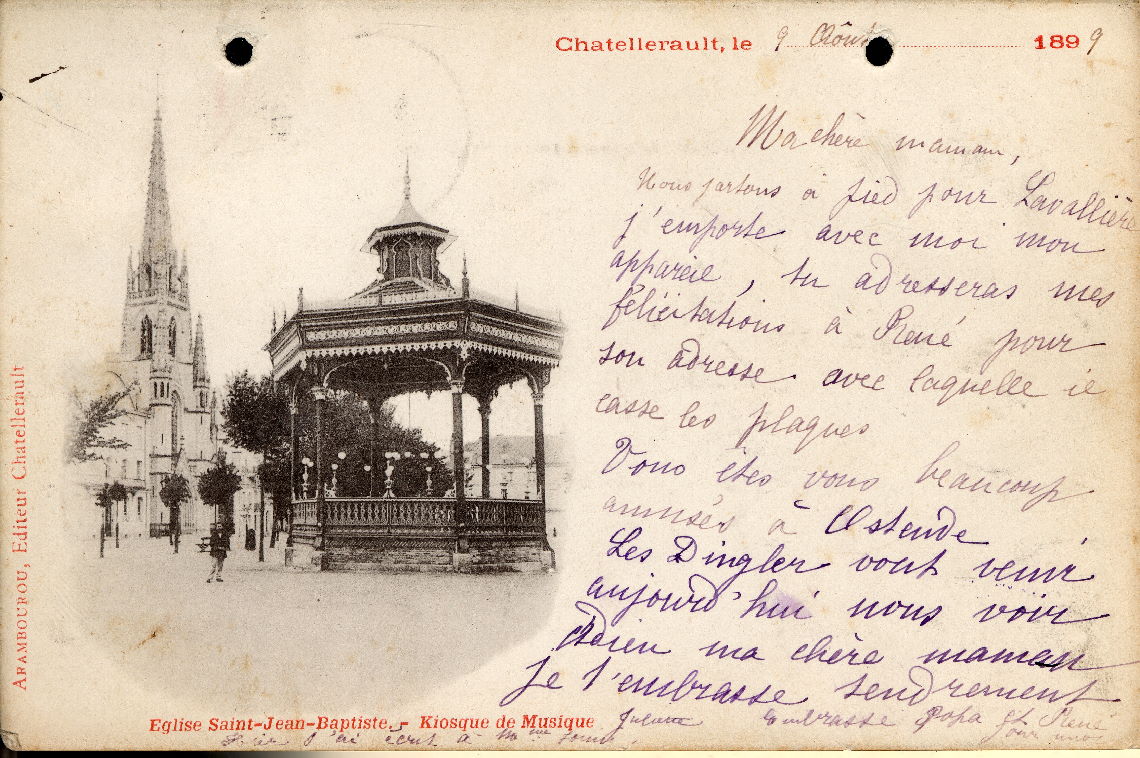 Chatellerault, le 9 Août 1899
Ma chère maman,
Nous partons à pied pour Lavallière
j'emporte avec moi mon
appareil, tu adresseras mes
félicitations à René pour
son adresse avec laquelle ie
casse les plaques
Vous êtes vous beaucoup
amusés à Ostende
Les Dingler vont venir
aujourd'hui nous voir
Adieu ma chère maman
je t'embrasse tendrement
Embrasse Papa et René
pour nous
Hier j'ai écrit à Mme
Eglise Saint-Jean-Baptiste. - Kiosque de Musique
ARAMBOUROU, Editeur Chatellerault